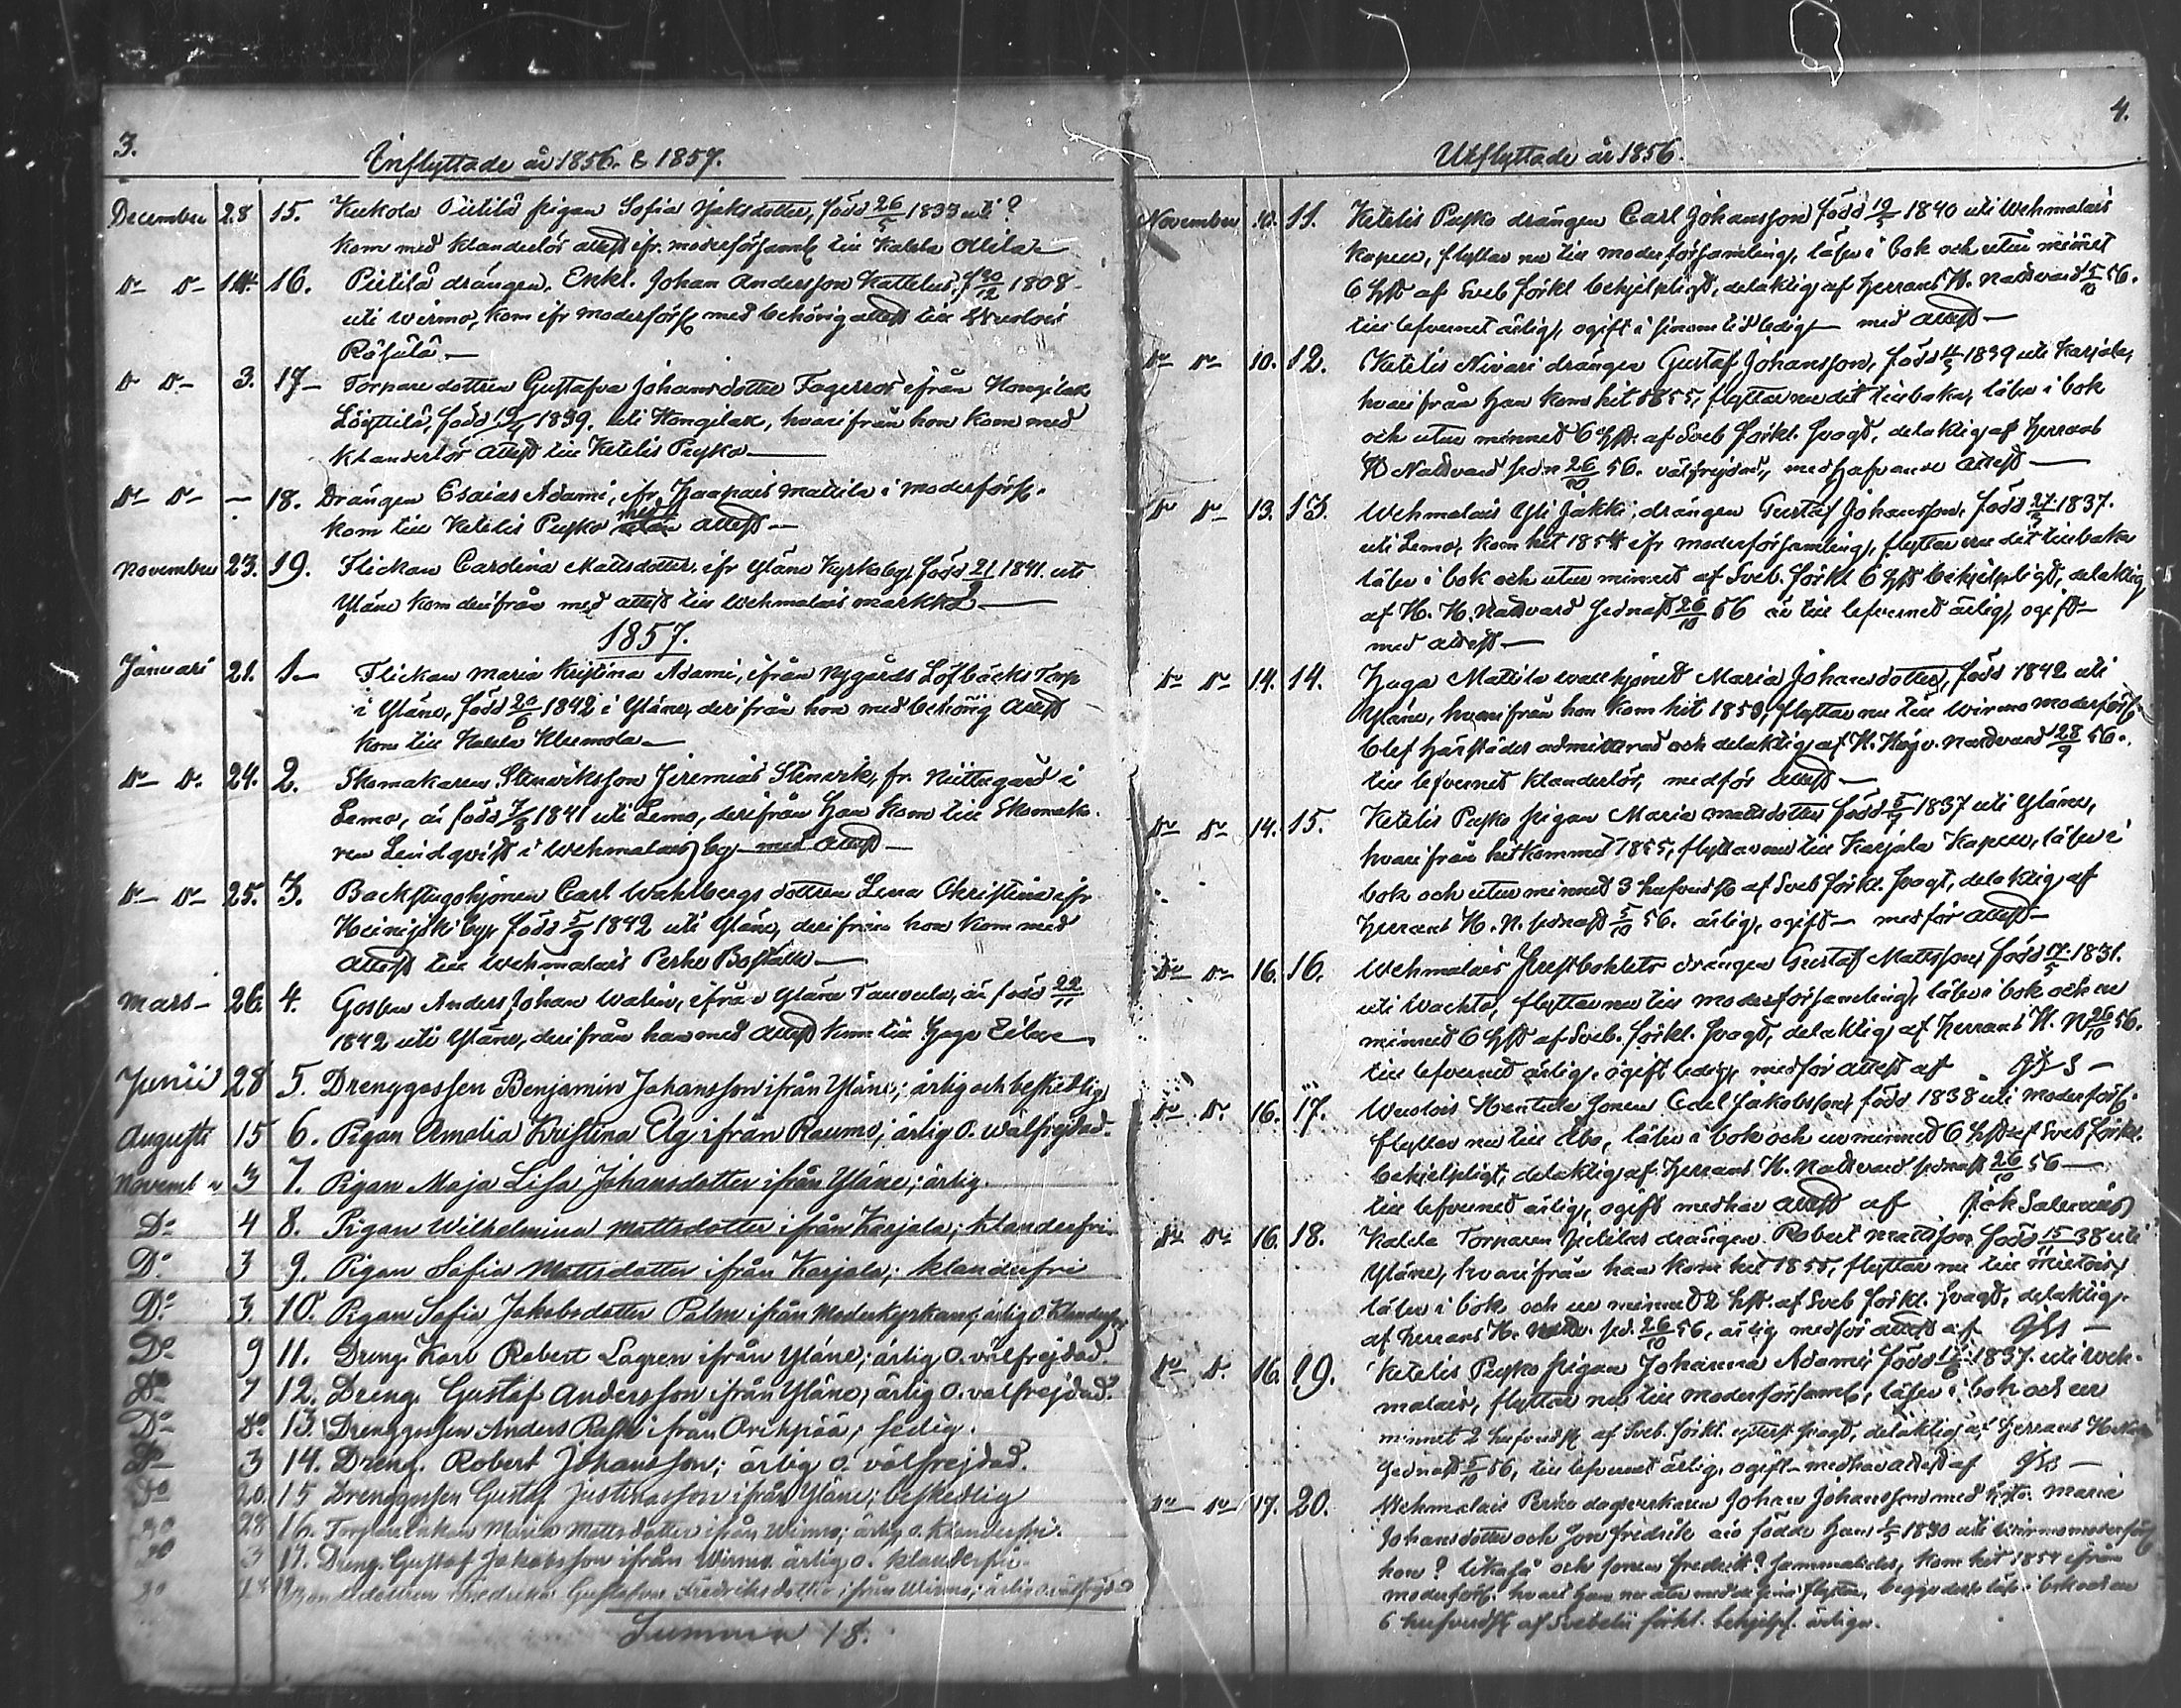 3.
Inflyttade år 1856. & 1857.
December 28 15. Kukola Pietilä pigan Sofia Jaksdotter, född 26/5 1833 uti ?
kom med klanderlös attest ifr. moderförsaml till Kalela Ollila
Do Do 14 16. Pietilä drängen, Enkl. Johan Andersson Kattelus, f 30/12 1808
uti Wirmo, kom ifr moderförs med behörig attest till
Do Do 3. 17 Torpare dottren Gustafva Johansdotter Fagerroos ifrån Hongilax
född 19/4 1839. uti Hongilax, hvarifrån hon kom med
klanderlös attest till Ketelis Pryko
Do Do — 18. Drängen Esaias Adami, ifr. Mattila i moderförs.
kom till Ketelis med attest
November 23. 19. Flickan Carolina Mattsdotter ifr Yläne Kyrkoby, född 21/1 1841. uti
Yläne kom derifrån med attest till Wehmalais
1857.
Januari 21. 1 Flickan Maria Kristina Adami, ifrån Nygårds Löfbacks Torp
i Yläne, född 20/6 1842 i Yläne, derifrån hon med behörig attest
kom till Kalela Klemola
Do Do 24. 2. Skomakaren Stenriksson Jeremias Stenrik, fr. i
Lemo, är född 1841 uti Lemo, derifrån han kom till Skomaka-
ren Lindqvist i Wehmalais by med attest
Do Do 25. 3. Backstugohjonen Carl Wahlbergs dottren Lena Christina ifr
Heinijoki by, född 5/9 1842 uti Yläne, derifrån hon kom med
attest till Wehmalais Perko Boställe
Mars 26. 4. Gossen Anders Johan Walin, ifrån Yläne är född 22/11
1842 uti Yläne, derifrån han med attest kom till Haga Eilare
Junii 28 5. Drenggossen Benjamin Johansson ifrån Yläne; ärlig och beskedlig
Augusti 15 6. Pigan Amalia Kristina Elg ifrån Raumo; ärlig o. wälfrejdad.
November 3 7. Pigan Maja Lisa Johansdotter ifrån Yläne; ärlig.
Do 4 8. Pigan Wilhelmina Mattsdotter ifrån Karjala; klanderfri.
Do 3 9. Pigan Sofia Mattsdotter ifrån Karjala; klanderfri
Do 3. 10. Pigan Sofia Jakobsdotter Palm ifrån Moderkyrkan; ärlig o. klanderfri
Do 9 11. Dreng. Karl Robert Lagren ifrån Yläne; ärlig o. välfrejdad.
Do 7 12. Dreng. Gustaf Andersson ifrån Yläne; ärlig o. välfrejdad.
Do Do 13. Drenggossen Anders Rask ifrån Oripää; ledig.
Do 3 14. Dreng. Robert Johansson; ärlig o. välfrejdad.
Do 20. 15 Drenggossen Gustaf Justinasson ifrån Yläne; beskedlig
Do 28 16. Maria Mattsdotter ifrån Wirmo; ärlig o. klanderfri.
Do 3 17. Dreng. Gustaf Jakobsson ifrån Wirmo ärlig o. klanderfri.
Do Fredrika Gustafva Fredriksdotter ifrån Wirmo; ärlig o. välfrejdad
Summa 18.
4.
Utflyttade år 1856.
November 10. 11. Ketelis drängen Carl Johansson född 19/5 1840 uti Wehmalais
kapell, flyttar nu till moderförsamling, läser i bok och utur minnet
6 hfst af Sveb förkl behjelpligt, delaktig af Herrans H. Nattvard 5/10 56.
till lefvernet ärlig, ogift i sinom tid ledig — med attest
Do Do 10. 12. Ketelis Nivari drängen Gustaf Johansson, född 1839 uti Karjala,
hvarifrån han kom hit 1855, flyttar nu dit tillbaka, läser i bok
och utur minnet 6 hfst. af Sveb förkl. svagt, delaktig af Herrans
H Nattvard sedn 26/10 56. välfrejdad, medhafvande attest
Do Do 13. 13. Wehmalais Yli Jakki; drängen Gustaf Johansson, född 27/5 1837.
uti Lemo, kom hit 1854 ifr moderförsamling, flyttar nu dit tillbaka
läser i bok och utur minnet af Sveb. förkl 6 hfst behjelpligt, delaktig
af H. H. Nattvard sednast 26/10 56 är till lefvernet ärlig, ogift
med attest
Do Do 14. 14. Haga Mattila Maria Johansdotter, född 1842 uti
Yläne, hvarifrån hon kom hit 1853, flyttar nu till Wirmo moderförs
blef härstädes admitterad och delaktig af H. Högv. Nattvard 28/9 56.
till lefvernet klanderlös, medför attest
Do Do 14. 15. Ketelis pigan Maria Mattsdotter född 1837 uti Yläne,
hvarifrån hitkommen 1855, flyttar nu till Karjala Kapell, läser i
bok och utur minnet 3 hufvudst af Sveb förkl. svagt, delaktig af
Herrans H. N. sednast 5/10 56. ärlig, ogift — medför attest
Do Do 16. 16. Wehmalais drängen Gustaf Mattsson född 1831.
uti flyttar nu till moderförsamling, läser i bok och ur
minnet 6 hfst af Sveb. förkl. svagt, delaktig af Herrans H. N 26/10 56.
till lefvernet ärlig, ogift ledig, medför attest af
Do Do 16. 17. Sonen Carl Jakobsson född 1838 uti moderförs.
flyttar nu till Åbo, läser i bok och ur minnet 6 hfst af Sveb förkl.
behjelpligt, delaktig af Herrans H. Nattvard sednast 26/10 56
till lefvernet ärlig, ogift medhar attest af
Do Do 16. 18. Kalela Torparen drängen Robert Mattsson född 15/11 38 uti
Yläne, hvarifrån han kom hit 1855, flyttar nu till Mietois,
läser i bok och ur minnet 2 hfst. af Sveb förkl. svagt, delaktig.
af Herrans H. Nattv. sed. 26/10 56, ärlig medför attest af
Do Do 16. 19. Ketelis pigan Johanna Adami, född 1837. uti Weh-
malais, flyttar nu till moderförsaml, läser i bok och ur
minnet 2 hufvudst af Sveb. förkl. ytterst svagt, delaktig af Herrans H. Nattv
sednast 5/10 56, till lefvernet ärlig, ogift medhar attest af
Do Do 17. 20. Wehmalais Perko dagsverkaren Johan Johansson med Maria
Johansdotter och son Fredrik äro födde Han 1830 uti Wirmo moderförs
hon ? likaså och sonen Fredrik ? sammaledes, kom hit 1854 ifrån
moderförs. hvart han nu åter med de sina flyttar, begge läsa i bok och ur
6 hufvudst af Svebelii förkl. behjelpl. ärliga.